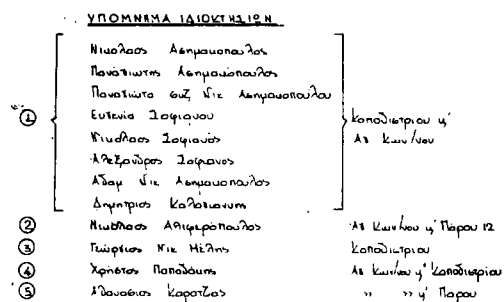 ΥΠΟΜΝΗΜΑ ΙΔΙΟΚΤΗΣΙΩΝ
Νικολαος Ασημακοπουλος
Παναγιωτης Ασημακόπουλος
Παναγιωτα συζ Νικ Ασημακοπουλου
Ευγενια Σοφιανου
① Νικολαος Σοφιανός Καποδιστριου κ'
Αλεξανδρος Σοφιανος Αγ Κων/νου
Αδαμ Νικ Ασημακοπουλος
Δημητριος Καλογιαννης
② Νικόλαος Αλιφερόπουλος Αγ Κων/νου κ' Πάρου 12
③ Γεώργιος Νικ Μέλης Καποδιστριου
④ Χρήστος Παπαδάκης Αγ Κων/νου κ' Καποδιστρίου
⑤ Αθανασιος Καρατζας " " κ' Παρου